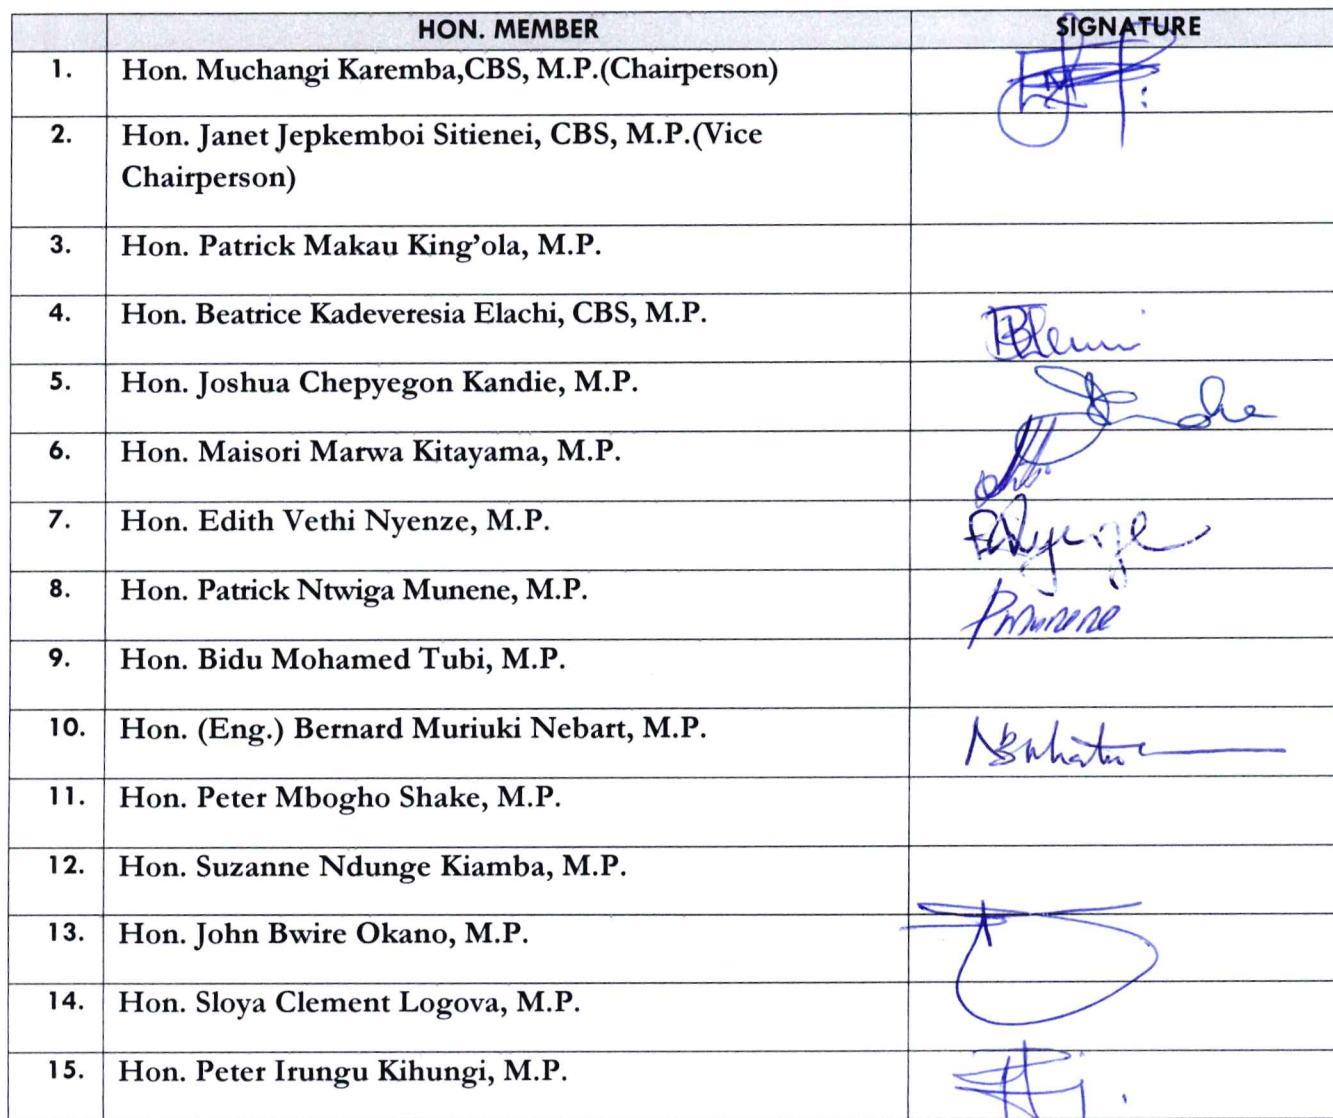 HON. MEMBER SIGNATURE
1. Hon. Muchangi Karemba,CBS, M.P.(Chairperson)
2. Hon. Janet Jepkemboi Sitienei, CBS, M.P.(Vice
Chairperson)
3. Hon. Patrick Makau King’ola, M.P.
4. Hon. Beatrice Kadeveresia Elachi, CBS, M.P.
5. Hon. Joshua Chepyegon Kandie, M.P.
6. Hon. Maisori Marwa Kitayama, M.P.
7. Hon. Edith Vethi Nyenze, M.P.
8. Hon. Patrick Ntwiga Munene, M.P. PMunene
9. Hon. Bidu Mohamed Tubi, M.P.
10. Hon. (Eng.) Bernard Muriuki Nebart, M.P.
11. Hon. Peter Mbogho Shake, M.P.
12. Hon. Suzanne Ndunge Kiamba, M.P.
13. Hon. John Bwire Okano, M.P.
14. Hon. Sloya Clement Logova, M.P.
15. Hon. Peter Irungu Kihungi, M.P.